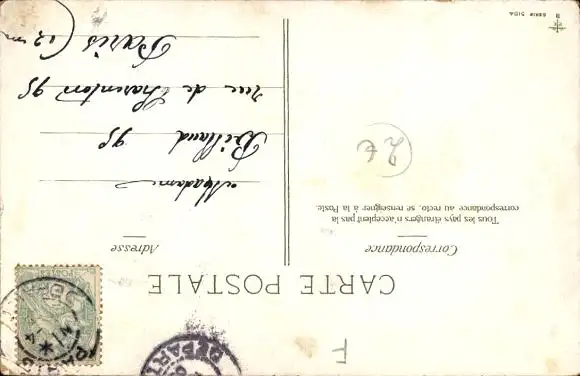 CARTE POSTALE
Correspondance
Tous les pays étrangers n'acceptent pas la
correspondance au recto, se renseigner à la Poste.
Adresse
Madame
Billaud 95
rue de Charenton 95
Paris (12 m
2€
F
POSTES
DEPART
SERIE 510A